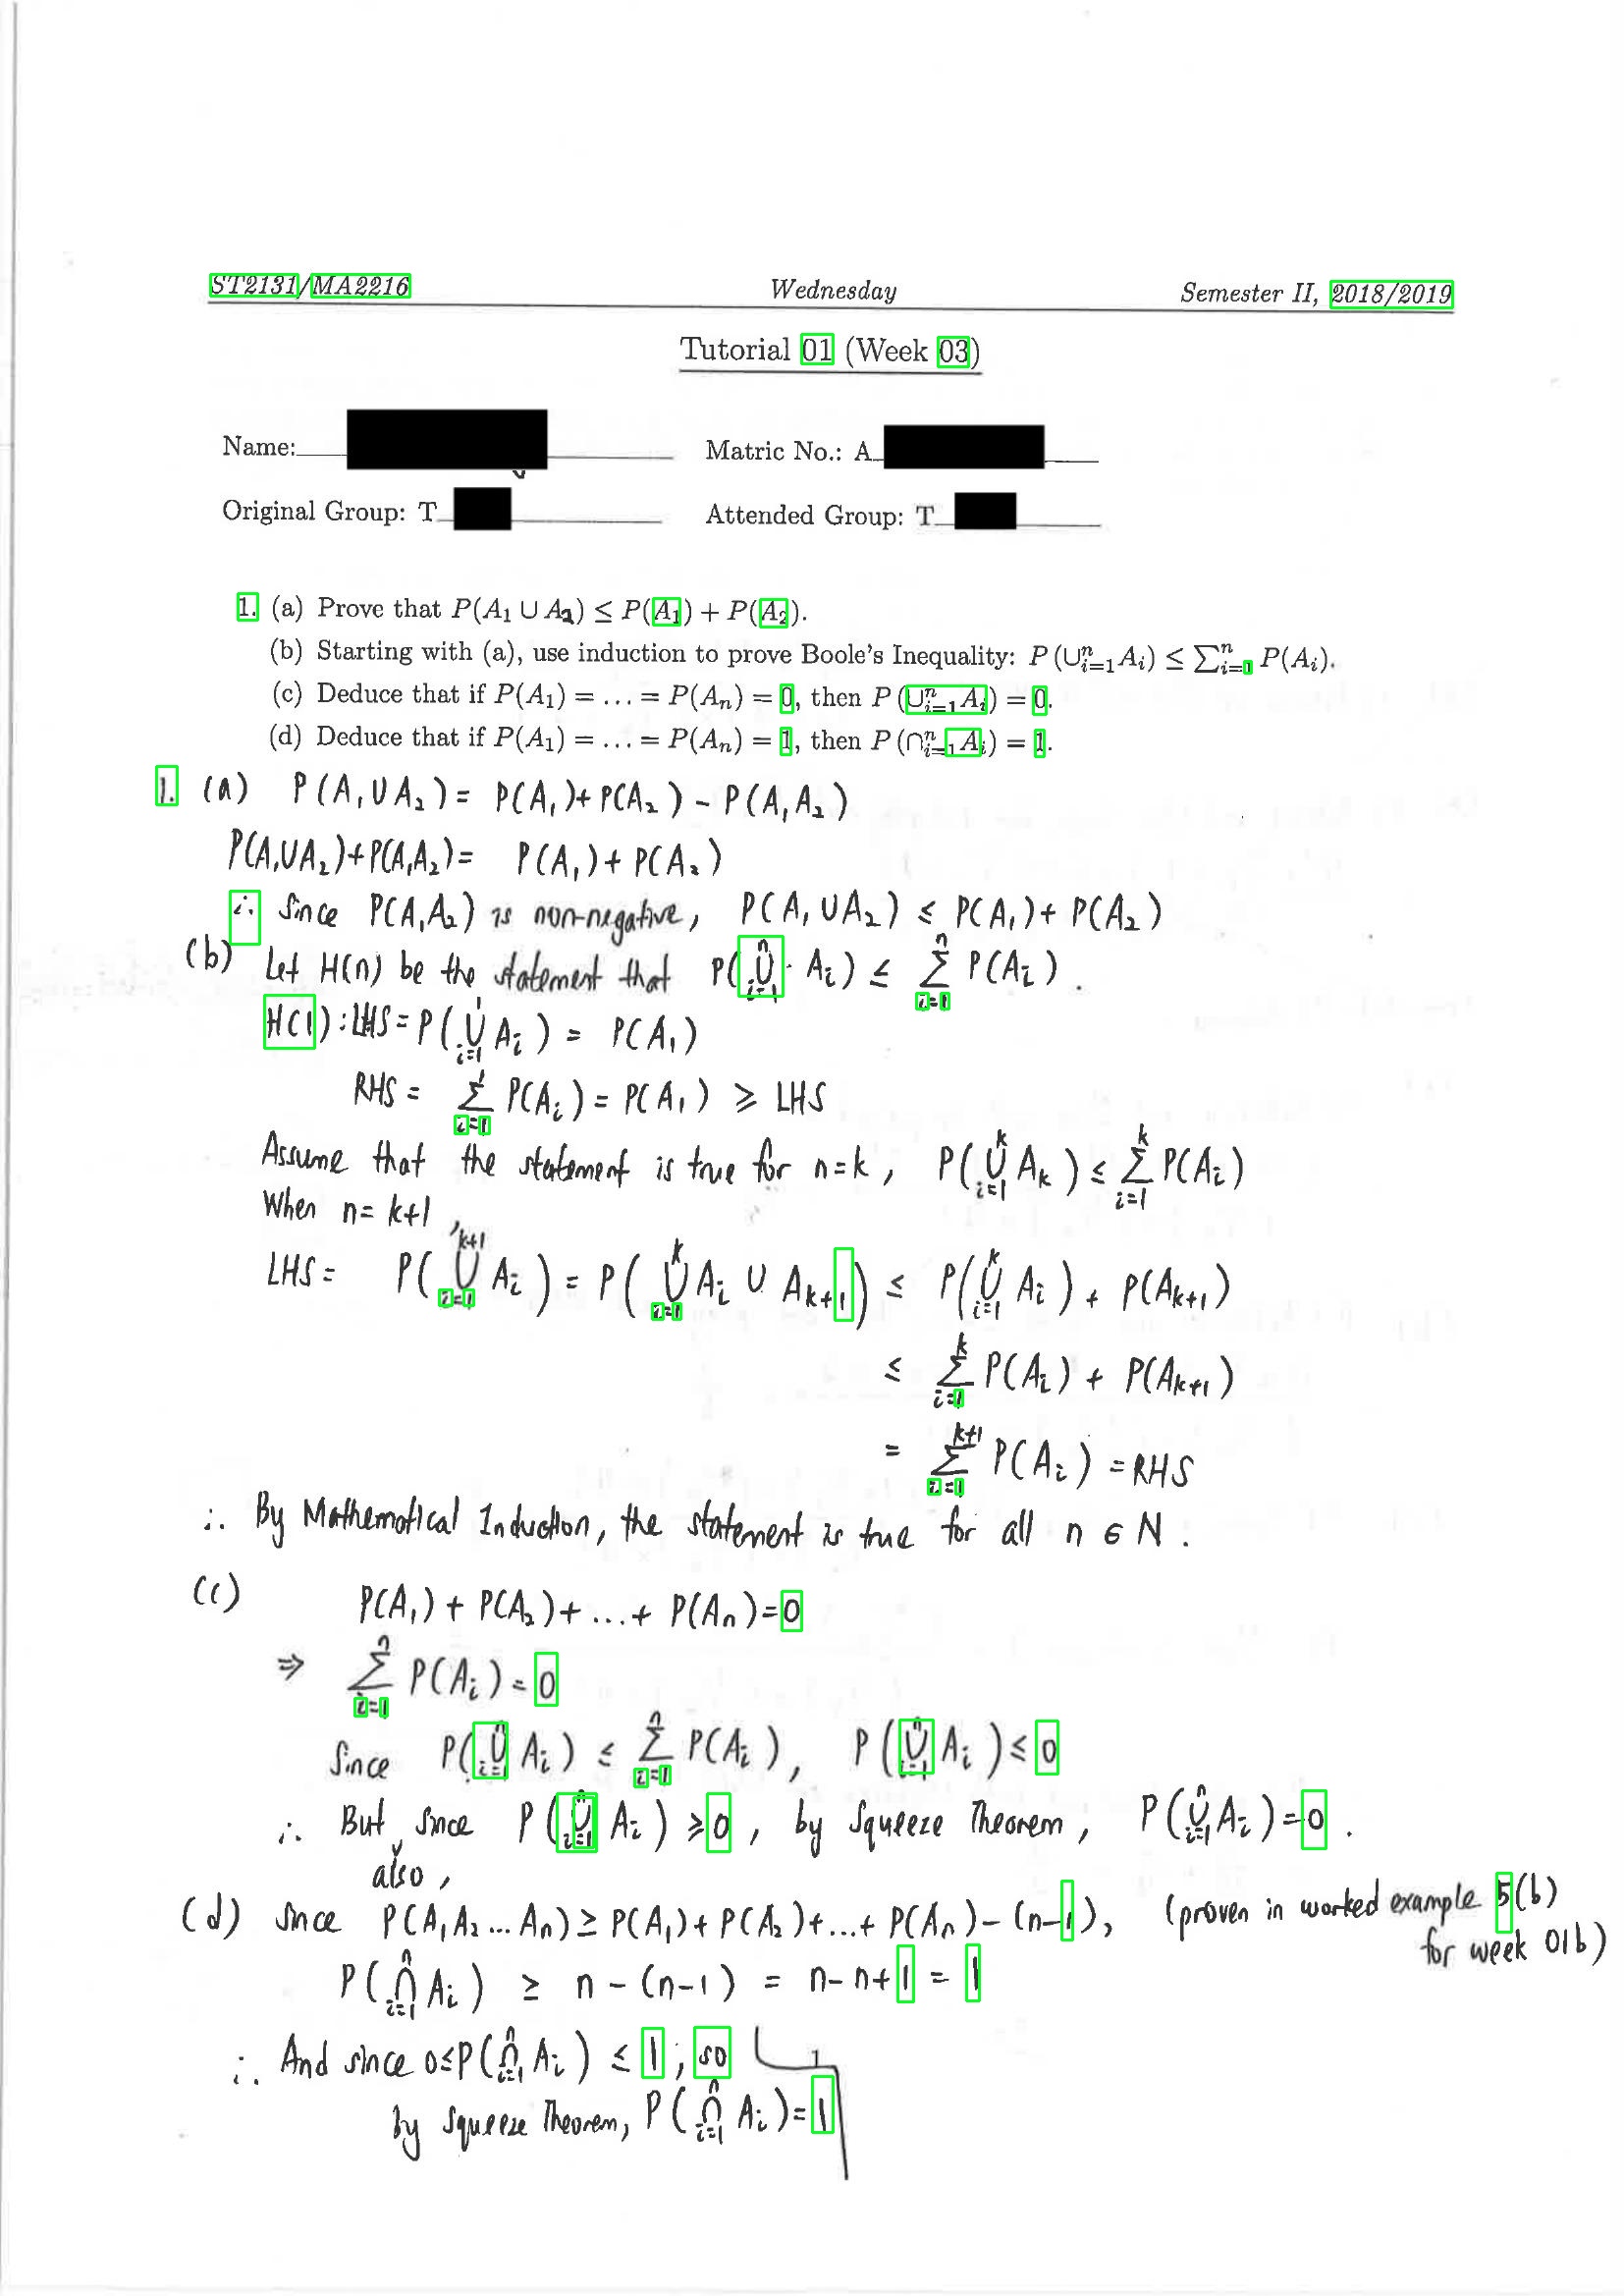 ST2131/MA2216 Wednesday Semester II, 2018/2019
Tutorial 01 (Week 03)
Name: Matric No.: A
Original Group: T Attended Group: T
1. (a) Prove that P(A₁ ∪ A₂) ≤ P(A₁) + P(A₂).
(b) Starting with (a), use induction to prove Boole's Inequality: P(∪ⁿᵢ₌₁Aᵢ) ≤ ∑ⁿᵢ₌₁ P(Aᵢ).
(c) Deduce that if P(A₁) = … = P(Aₙ) = 0, then P(∪ⁿᵢ₌₁Aᵢ) = 0.
(d) Deduce that if P(A₁) = … = P(Aₙ) = 1, then P(∩ⁿᵢ₌₁Aᵢ) = 1.
1. (a) P(A₁∪A₂) = P(A₁)+P(A₂) - P(A₁A₂)
P(A₁∪A₂)+P(A₁A₂) = P(A₁)+P(A₂)
∴ Since P(A₁A₂) is non-negative, P(A₁∪A₂) ≤ P(A₁)+P(A₂)
(b) Let H(n) be the statement that P(∪ⁿᵢ₌₁ Aᵢ) ≤ ∑ⁿᵢ₌₁ P(Aᵢ).
H(1): LHS = P(∪¹ᵢ₌₁ Aᵢ) = P(A₁)
RHS = ∑¹ᵢ₌₁ P(Aᵢ) = P(A₁) ≥ LHS
Assume that the statement is true for n=k, P(∪ᵏᵢ₌₁ Aₖ) ≤ ∑ᵏᵢ₌₁ P(Aᵢ)
When n= k+1,
LHS = P(∪ᵏ⁺¹ᵢ₌₁ Aᵢ) = P(∪ᵏᵢ₌₁ Aᵢ ∪ Aₖ₊₁) ≤ P(∪ᵏᵢ₌₁ Aᵢ) + P(Aₖ₊₁)
≤ ∑ᵏᵢ₌₁ P(Aᵢ) + P(Aₖ₊₁)
= ∑ᵏ⁺¹ᵢ₌₁ P(Aᵢ) = RHS
∴ By Mathematical Induction, the statement is true for all n ∈ N.
(c) P(A₁) + P(A₂) + ... + P(Aₙ) = 0
⇒ ∑ⁿᵢ₌₁ P(Aᵢ) = 0
Since P(∪ⁿᵢ₌₁ Aᵢ) ≤ ∑ⁿᵢ₌₁ P(Aᵢ), P(∪ⁿᵢ₌₁ Aᵢ) ≤ 0
∴ But since P(∪ⁿᵢ₌₁ Aᵢ) ≥ 0, by Squeeze Theorem, P(∪ⁿᵢ₌₁ Aᵢ) = 0.
also,
(d) Since P(A₁A₂...Aₙ) ≥ P(A₁)+P(A₂)+...+P(Aₙ)-(n-1), (proven in worked example 5(b)
for week 01b)
P(∩ⁿᵢ₌₁ Aᵢ) ≥ n-(n-1) = n-n+1 = 1
∴ And since 0≤P(∩ⁿᵢ₌₁ Aᵢ) ≤ 1, so
by Squeeze Theorem, P(∩ⁿᵢ₌₁ Aᵢ) = 1